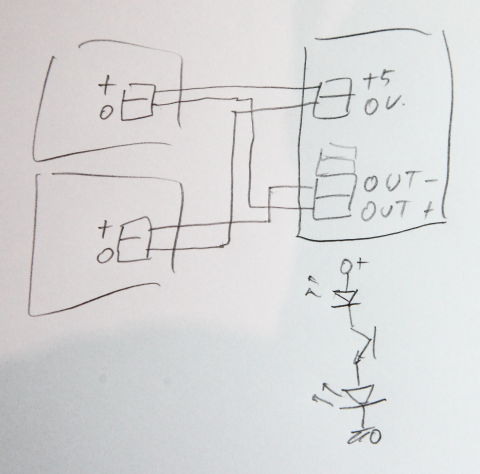 +
0
+5
0V.
OUT -
OUT +
+
0
0+
0